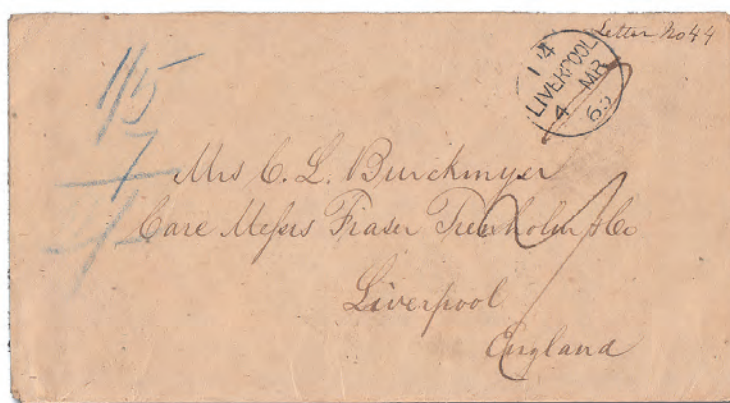 Letter No 44
LIVERPOOL
4 MR
1/5
7
Mrs C. L. Burckmyer
Care Messrs Fraser Trenholm & Co
Liverpool
England